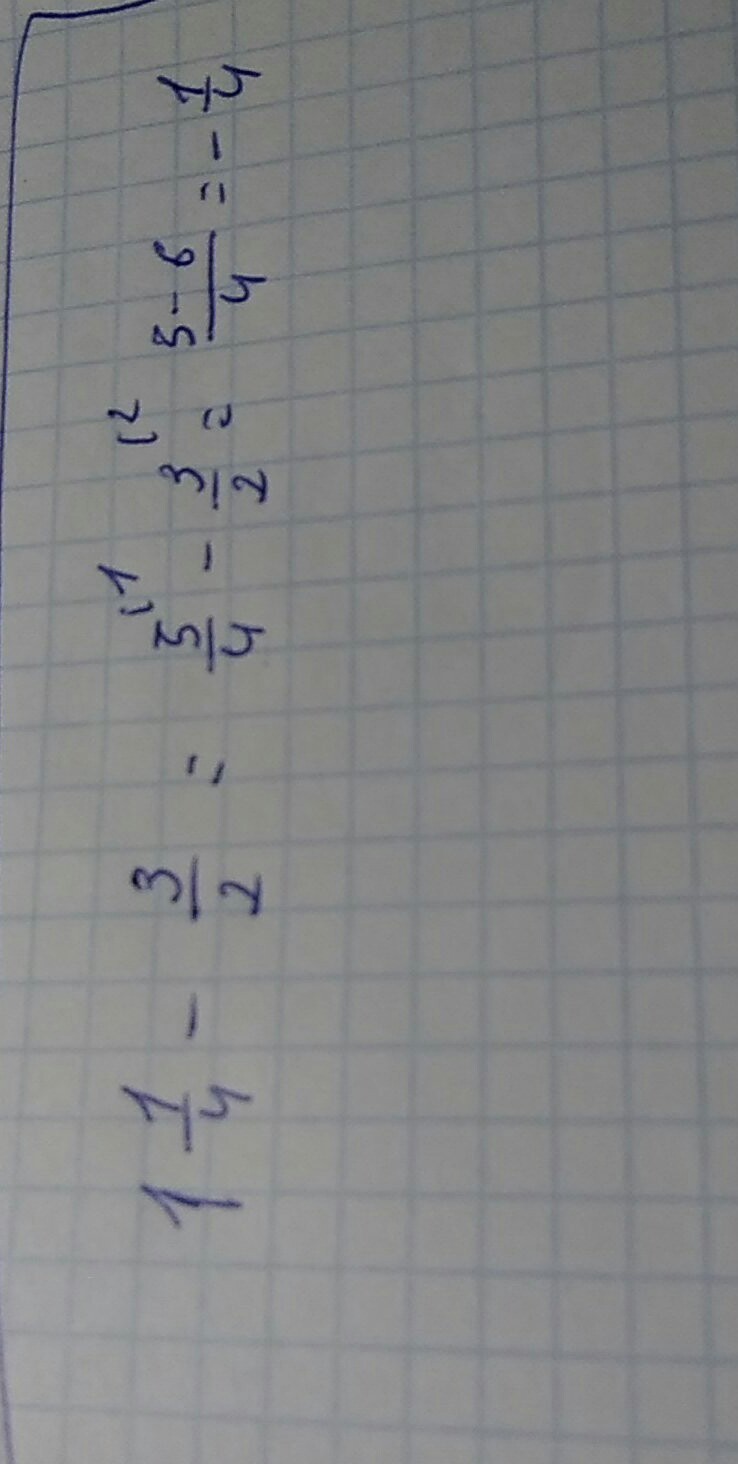 1 1/4 - 3/2 = 5/4 (1 - 3/2 (2 = 5-6/4 = - 1/4